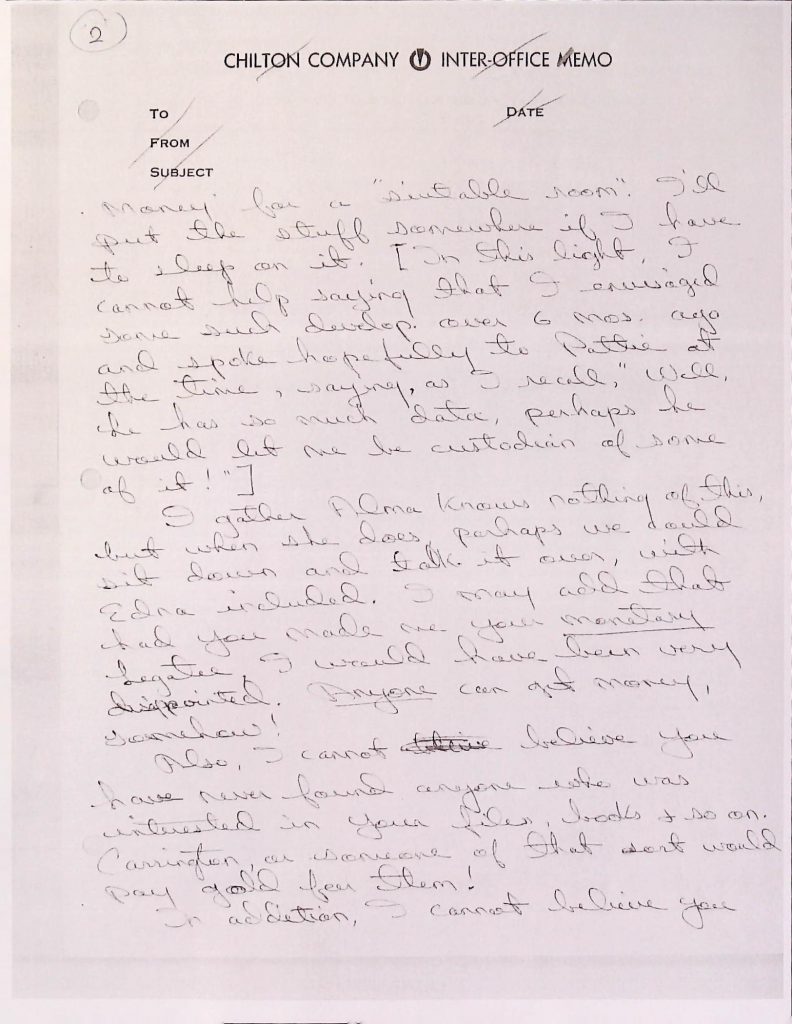 2
CHILTON COMPANY INTER-OFFICE MEMO
TO
DATE
FROM
SUBJECT
money for a "suitable room". I'll
put the stuff somewhere if I have
to sleep on it. [In this light, I
cannot help saying that I envisaged
some such develop. over 6 mos. ago
and spoke hopefully to Pattie at
the time, saying, as I recall, "Well,
he has so much data, perhaps he
would let me be custodian of some
of it!"]
I gather Alma knows nothing of this,
but when she does, perhaps we could
sit down and talk it over, with
Edna included. I may add that
had you made me your monetary
Legatee, I would have been very
disappointed. Anyone can get money,
somehow!
Also, I cannot believe you
have never found anyone who was
interested in your files, books & so on.
Carrington, or someone of that sort would
pay gold for them!
In addition, I cannot believe you